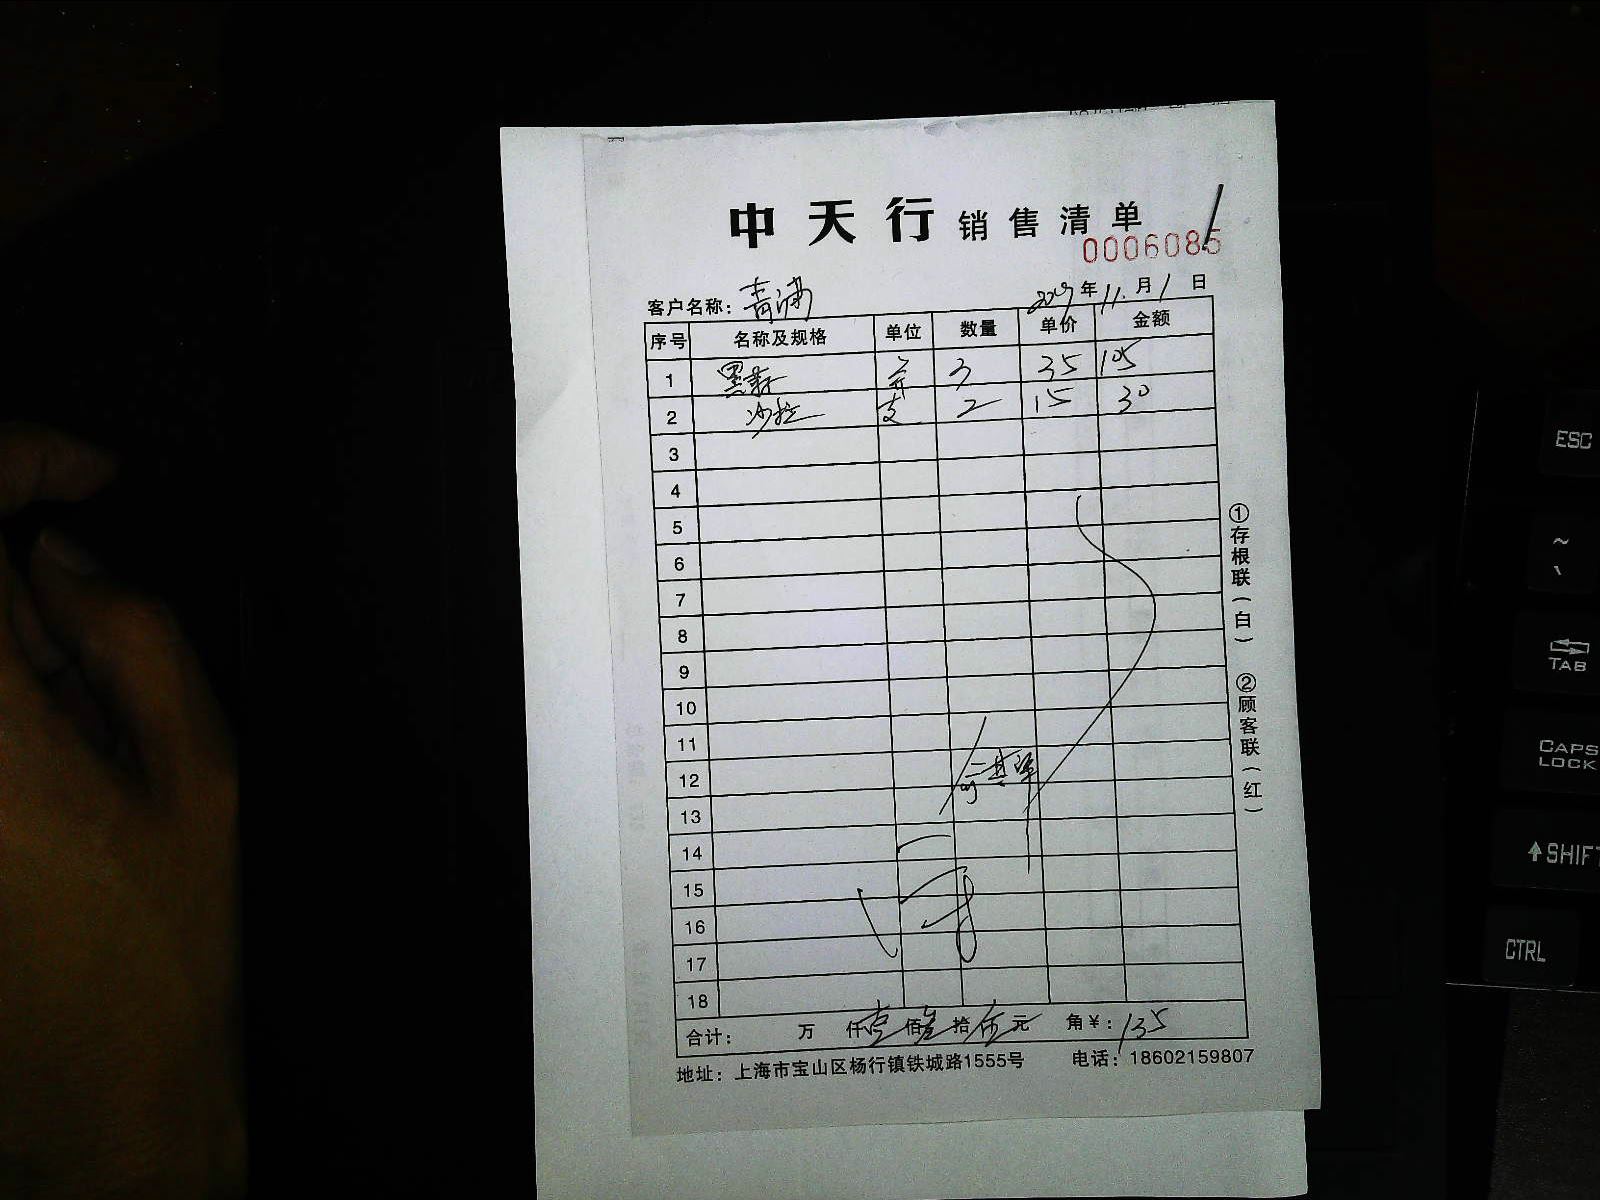 中天行 销售清单
0006085
客户名称：青浦 2019年11.月1日
序号 名称及规格 单位 数量 单价 金额
1 黑 3 35 105
2 沙拉 支 2 15 30
3
4
5
6
7
8
9
10
11
12
13
14
15
16
17
18
合计： 万 仟壹佰叁拾伍元 角￥：135
地址：上海市宝山区杨行镇铁城路1555号 电话：18602159807
①存根联（白） ②顾客联（红）
ESC
~
TAB
CAPS
LOCK
SHIFT
CTRL